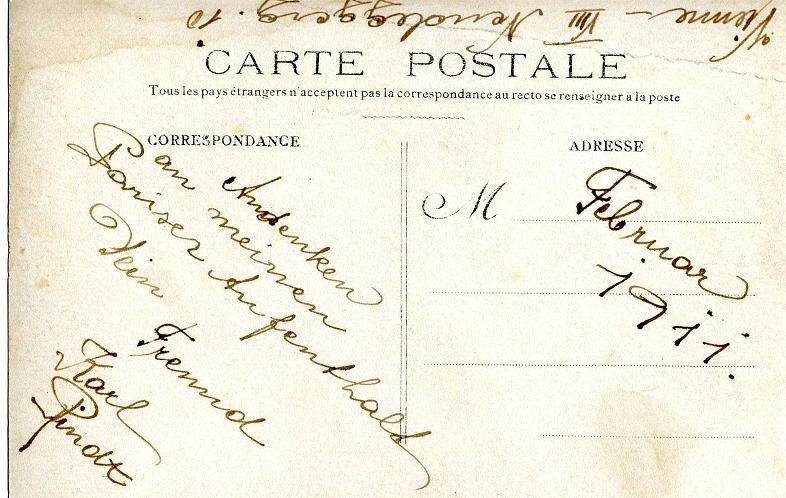 Vienne – VIII Neudeggerg. 10
CARTE POSTALE
Tous les pays étrangers n'acceptent pas la correspondance au recto se renseigner à la poste
CORRESPONDANCE
ADRESSE
M
Andenken
an meinen
Pariser Aufenthalt
Dein Freund
Karl
Pindt
Februar
1911.